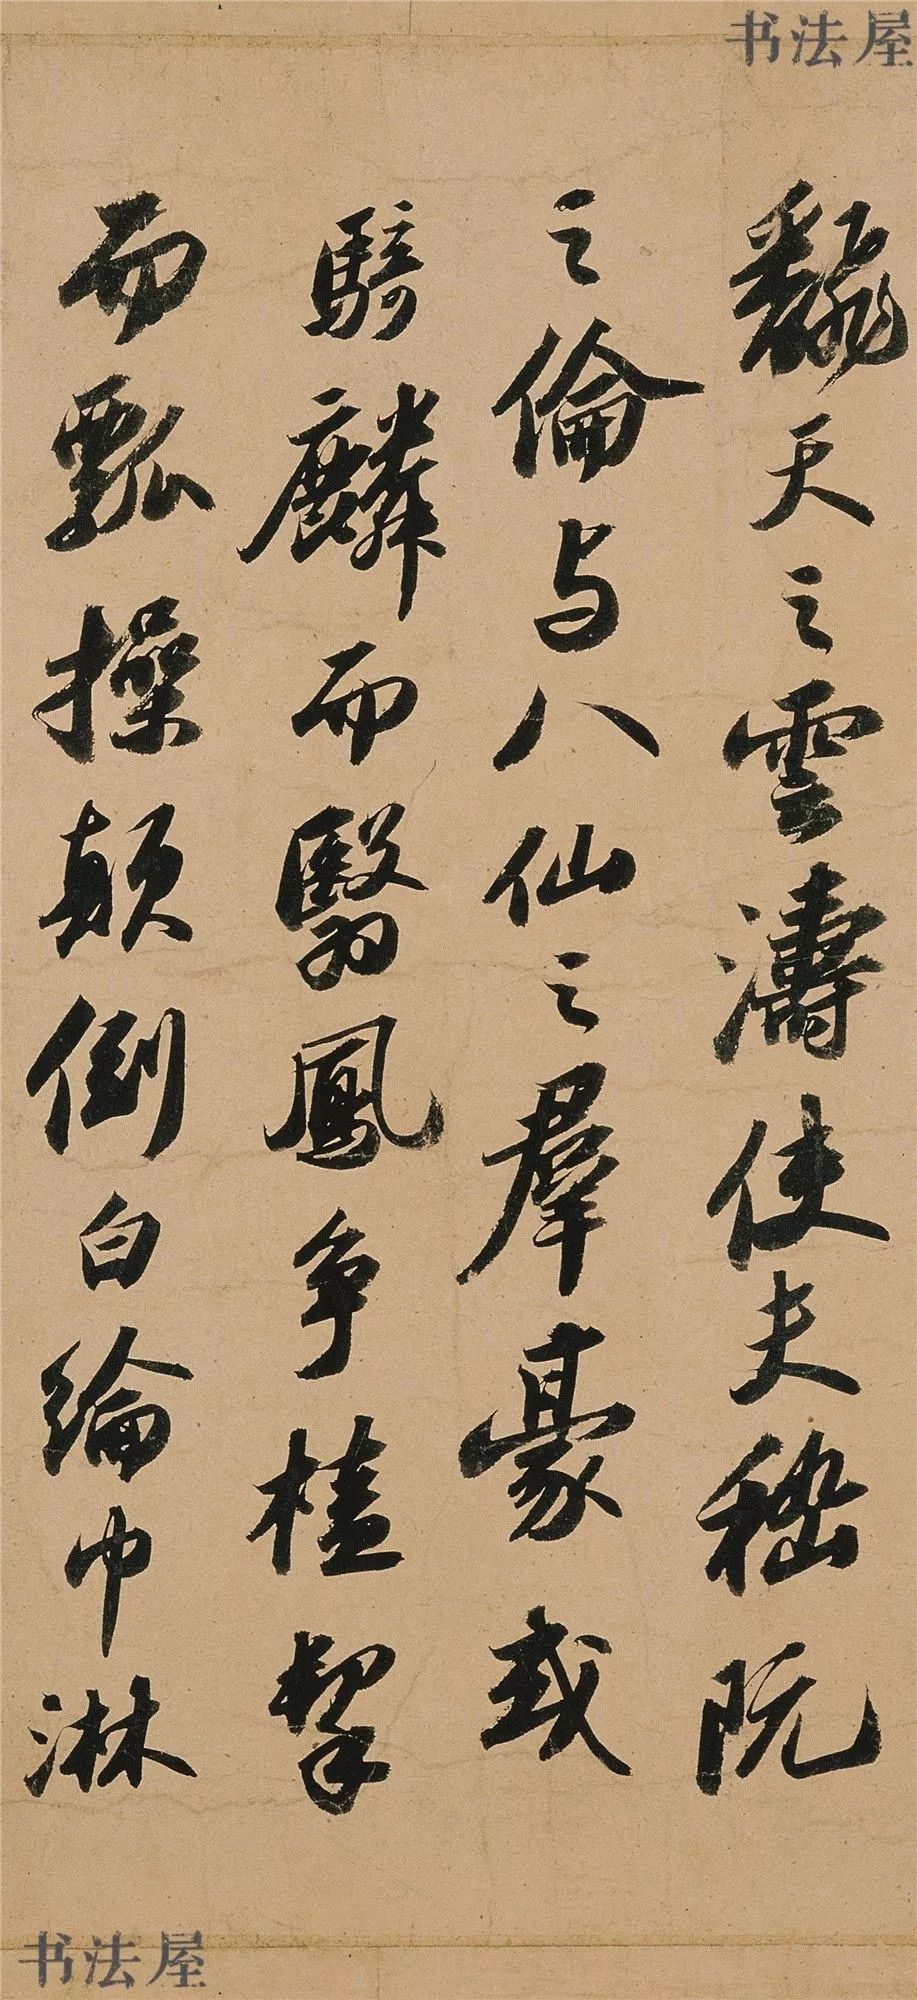 书法屋
翻天之雲濤使夫嵇阮
之倫与八仙之羣豪或
騎麟而翳鳳爭榼挈
而瓢操顛倒白綸巾淋
书法屋